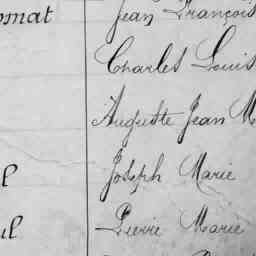 omat Jean François
Charles Louis
Auguste Jean M
Joseph Marie
Pierre Marie